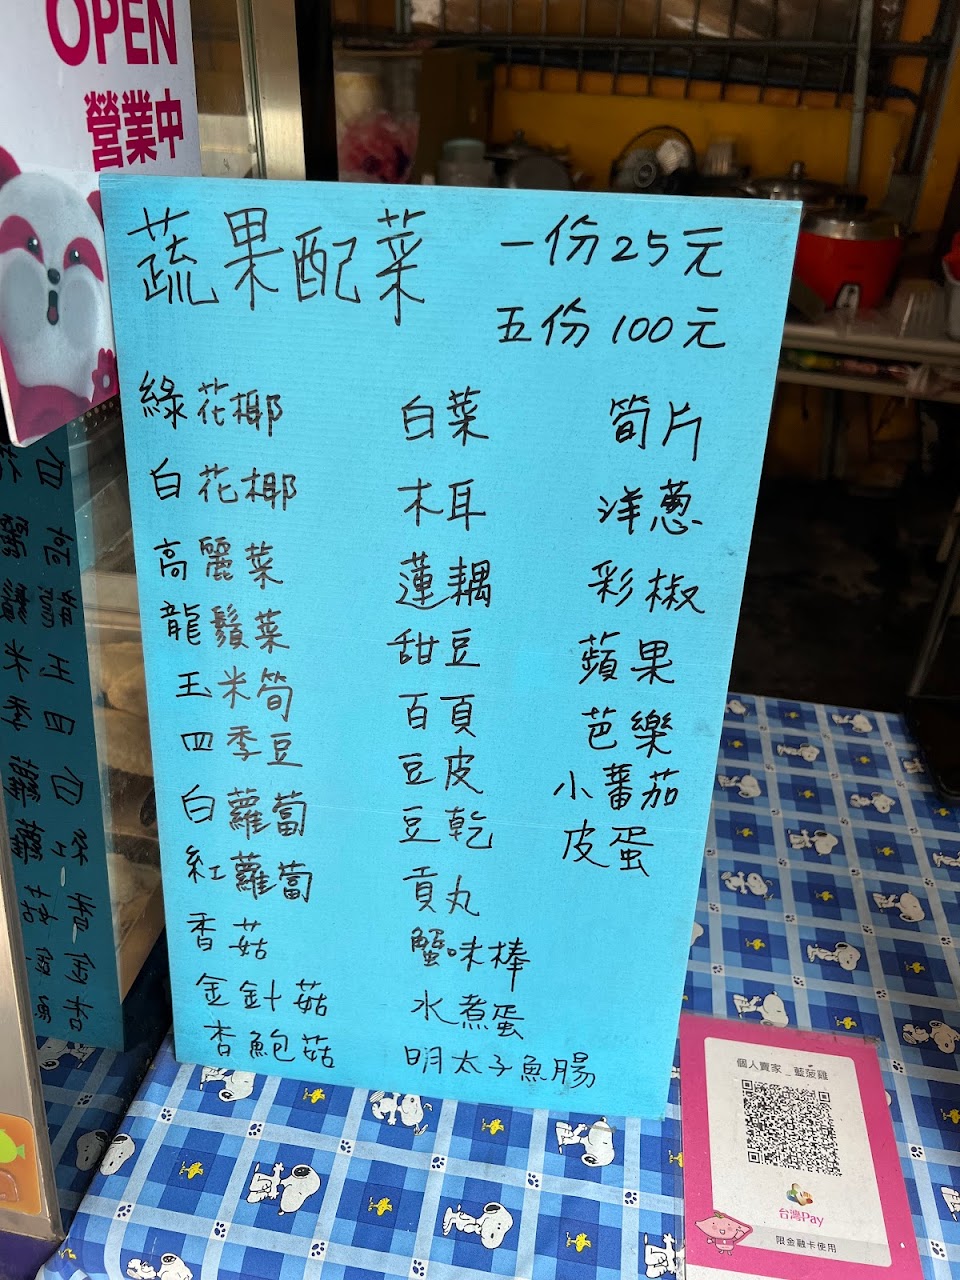 OPEN
營業中
蔬果配菜
一份25元
五份100元
綠花椰
白花椰
高麗菜
龍鬚菜
玉米筍
四季豆
白蘿蔔
紅蘿蔔
香菇
金針菇
杏鮑菇
白菜
木耳
蓮藕
甜豆
百頁
豆皮
豆乾
貢丸
蟹味棒
水煮蛋
明太子魚腸
筍片
洋蔥
彩椒
蘋果
芭樂
小蕃茄
皮蛋
個人賣家_藍菠雞
台灣Pay
限金融卡使用